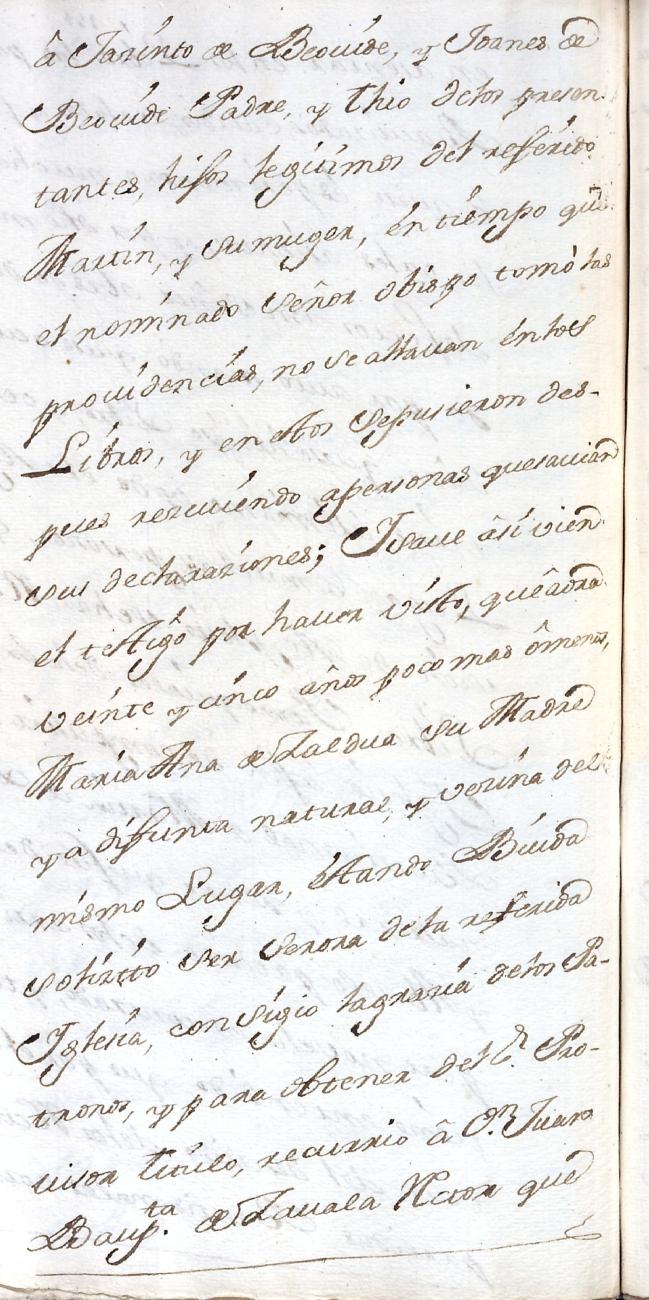 â Jazinto de Beovide, y Joanes de
Beovide Padre, y thio delos presen-
tantes, hijos legitimos del referido
Martin, y Sumuger, en tiempo que
el nominado Señor obispo tomò las
providencias, no se allavan en los
Libros, y en ellos Sepusieron des-
pues reziviendo apersonas quesavian
sus declaraziones; Isave âsi vien
el testigo por haver visto, queâora
veinte y cinco años pocomas ômenos,
Maria Ana de Zaldua su Madre
ya difunta natural, y vezina del
mismo Lugar, estando Biuda
solizito ser Serora dela referida
Iglesia, consigio lagrazia delos Pa-
tronos, y para obtener del S.r Pro-
visor titulo, recurrio â D.n Juan
Baup.ta de Zavala Rctor que